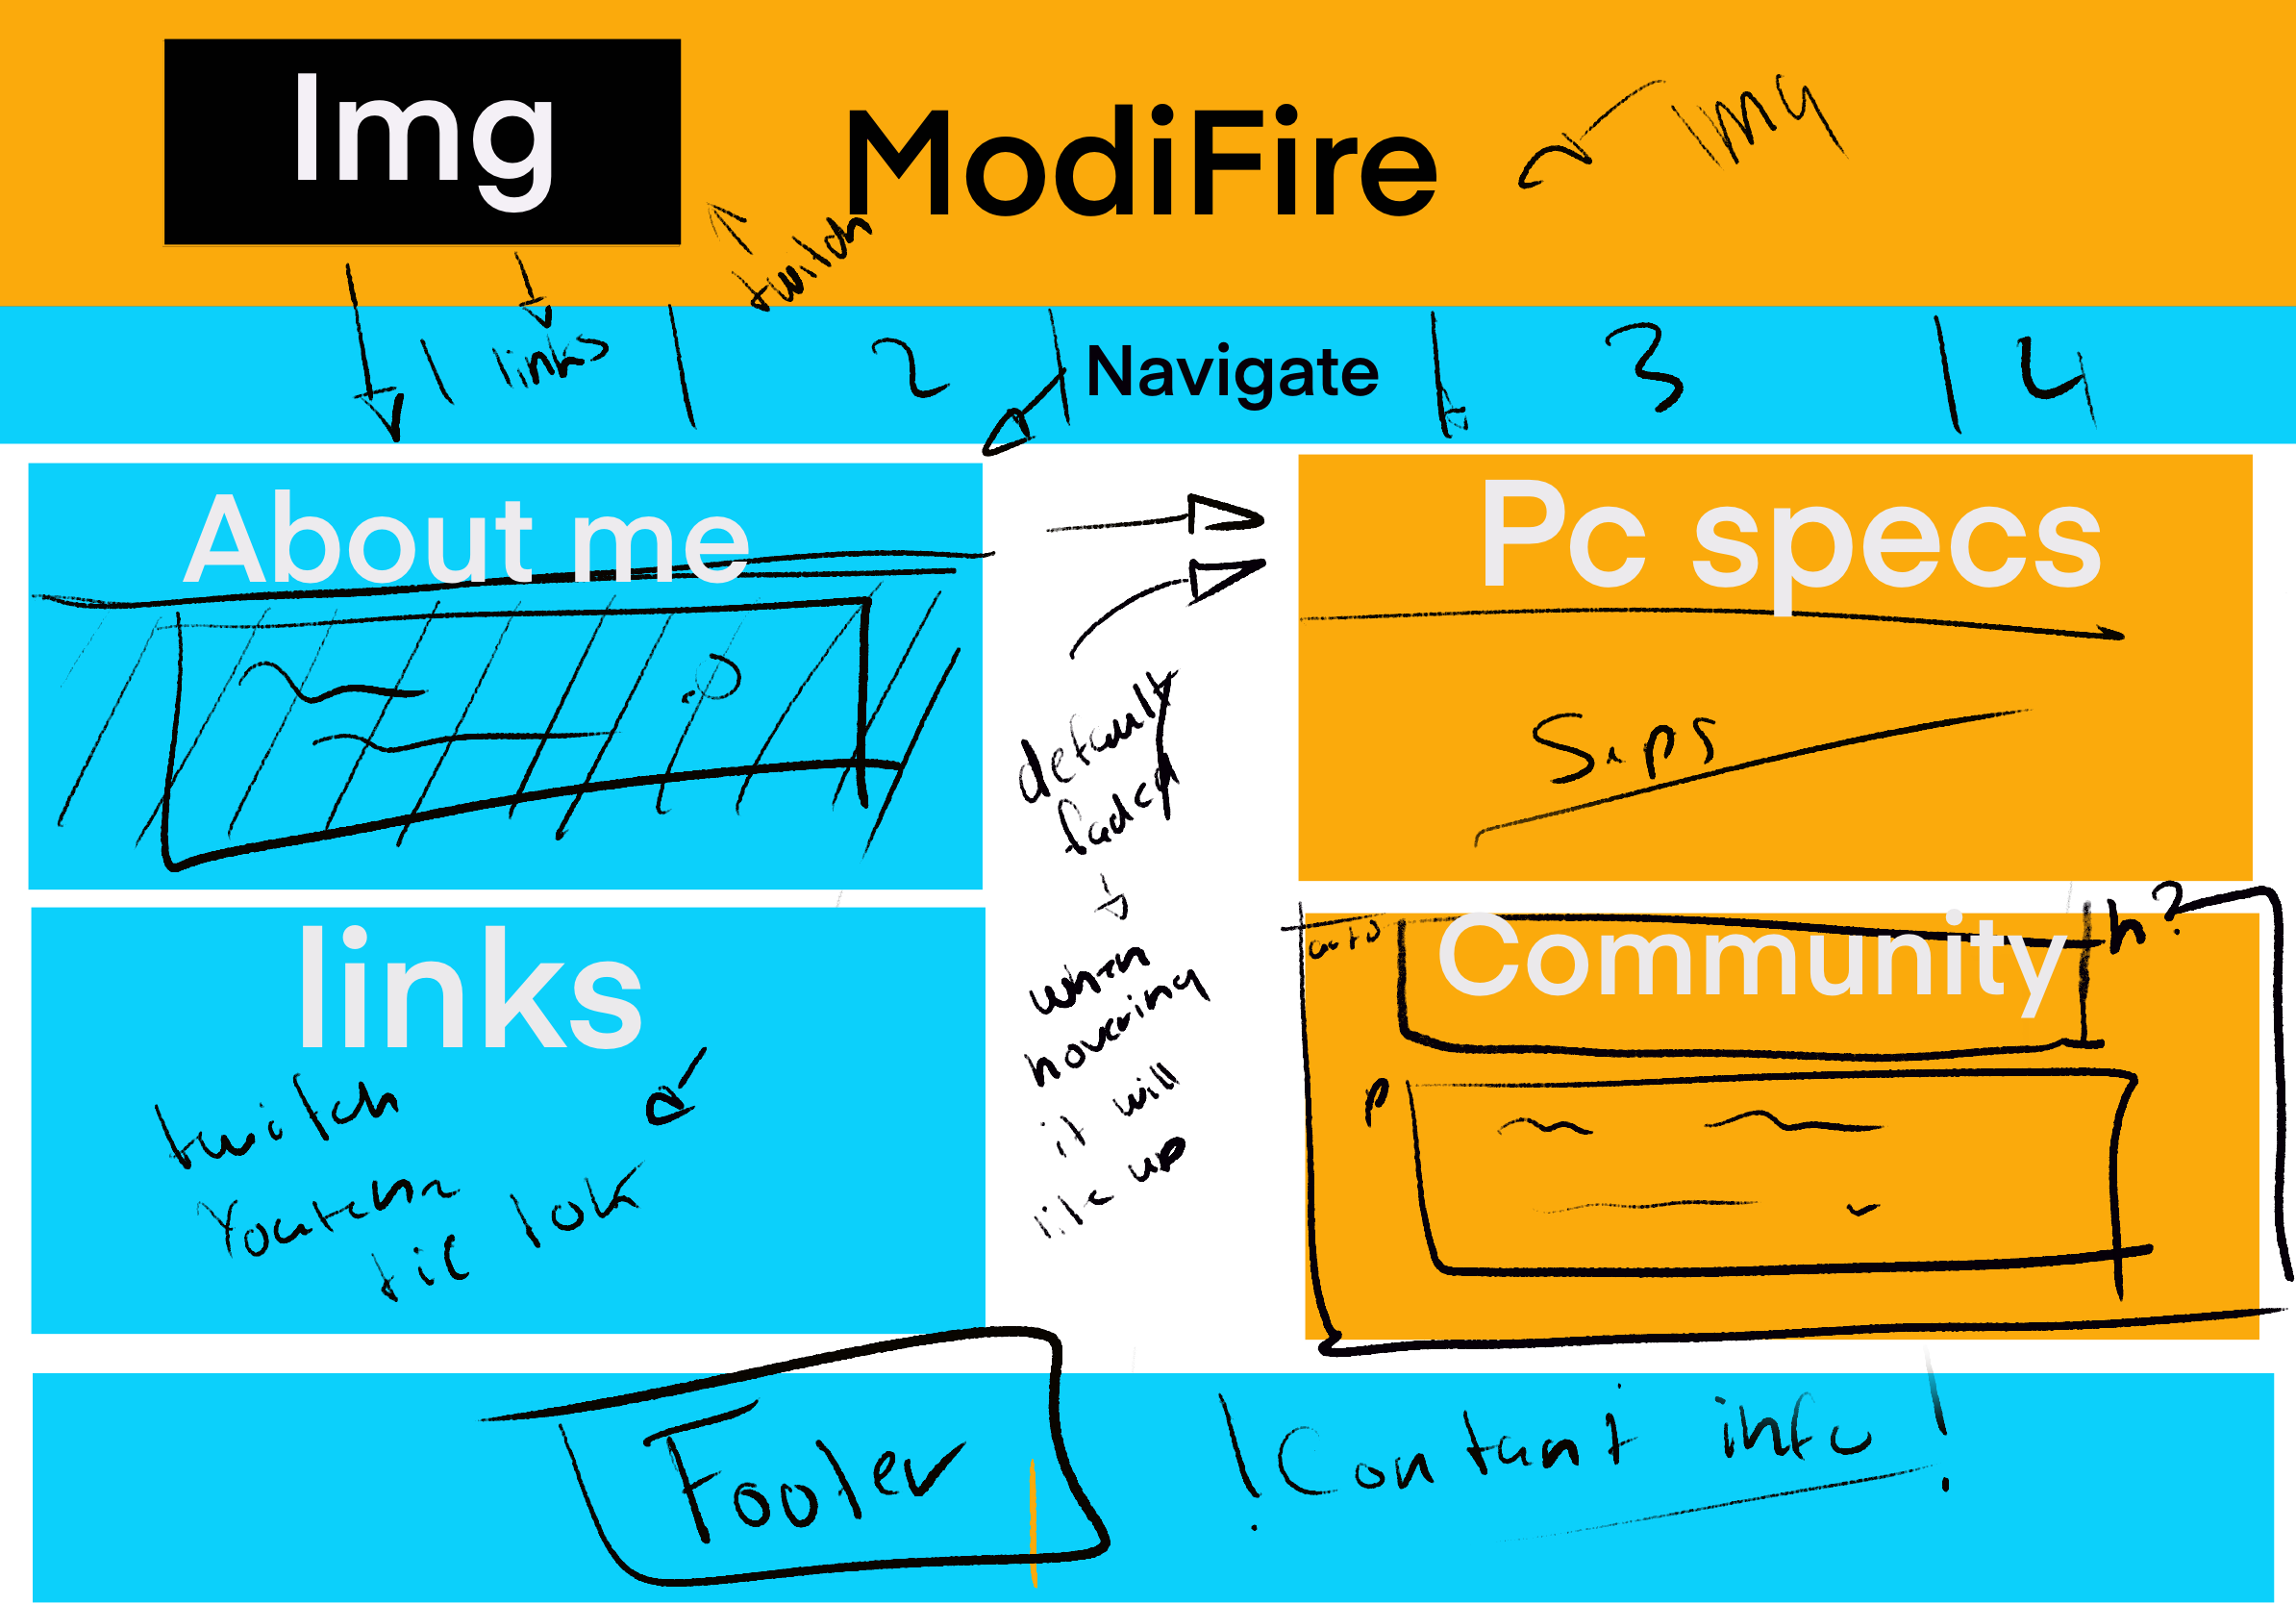 Img
ModiFire
Img
twitch
1
links
2
Navigate
3
4
About me
Pc specs
default
faded
when
hovering
it will
up
links
twitch
tic tok
Community
h?
p
Footer
!
info
!